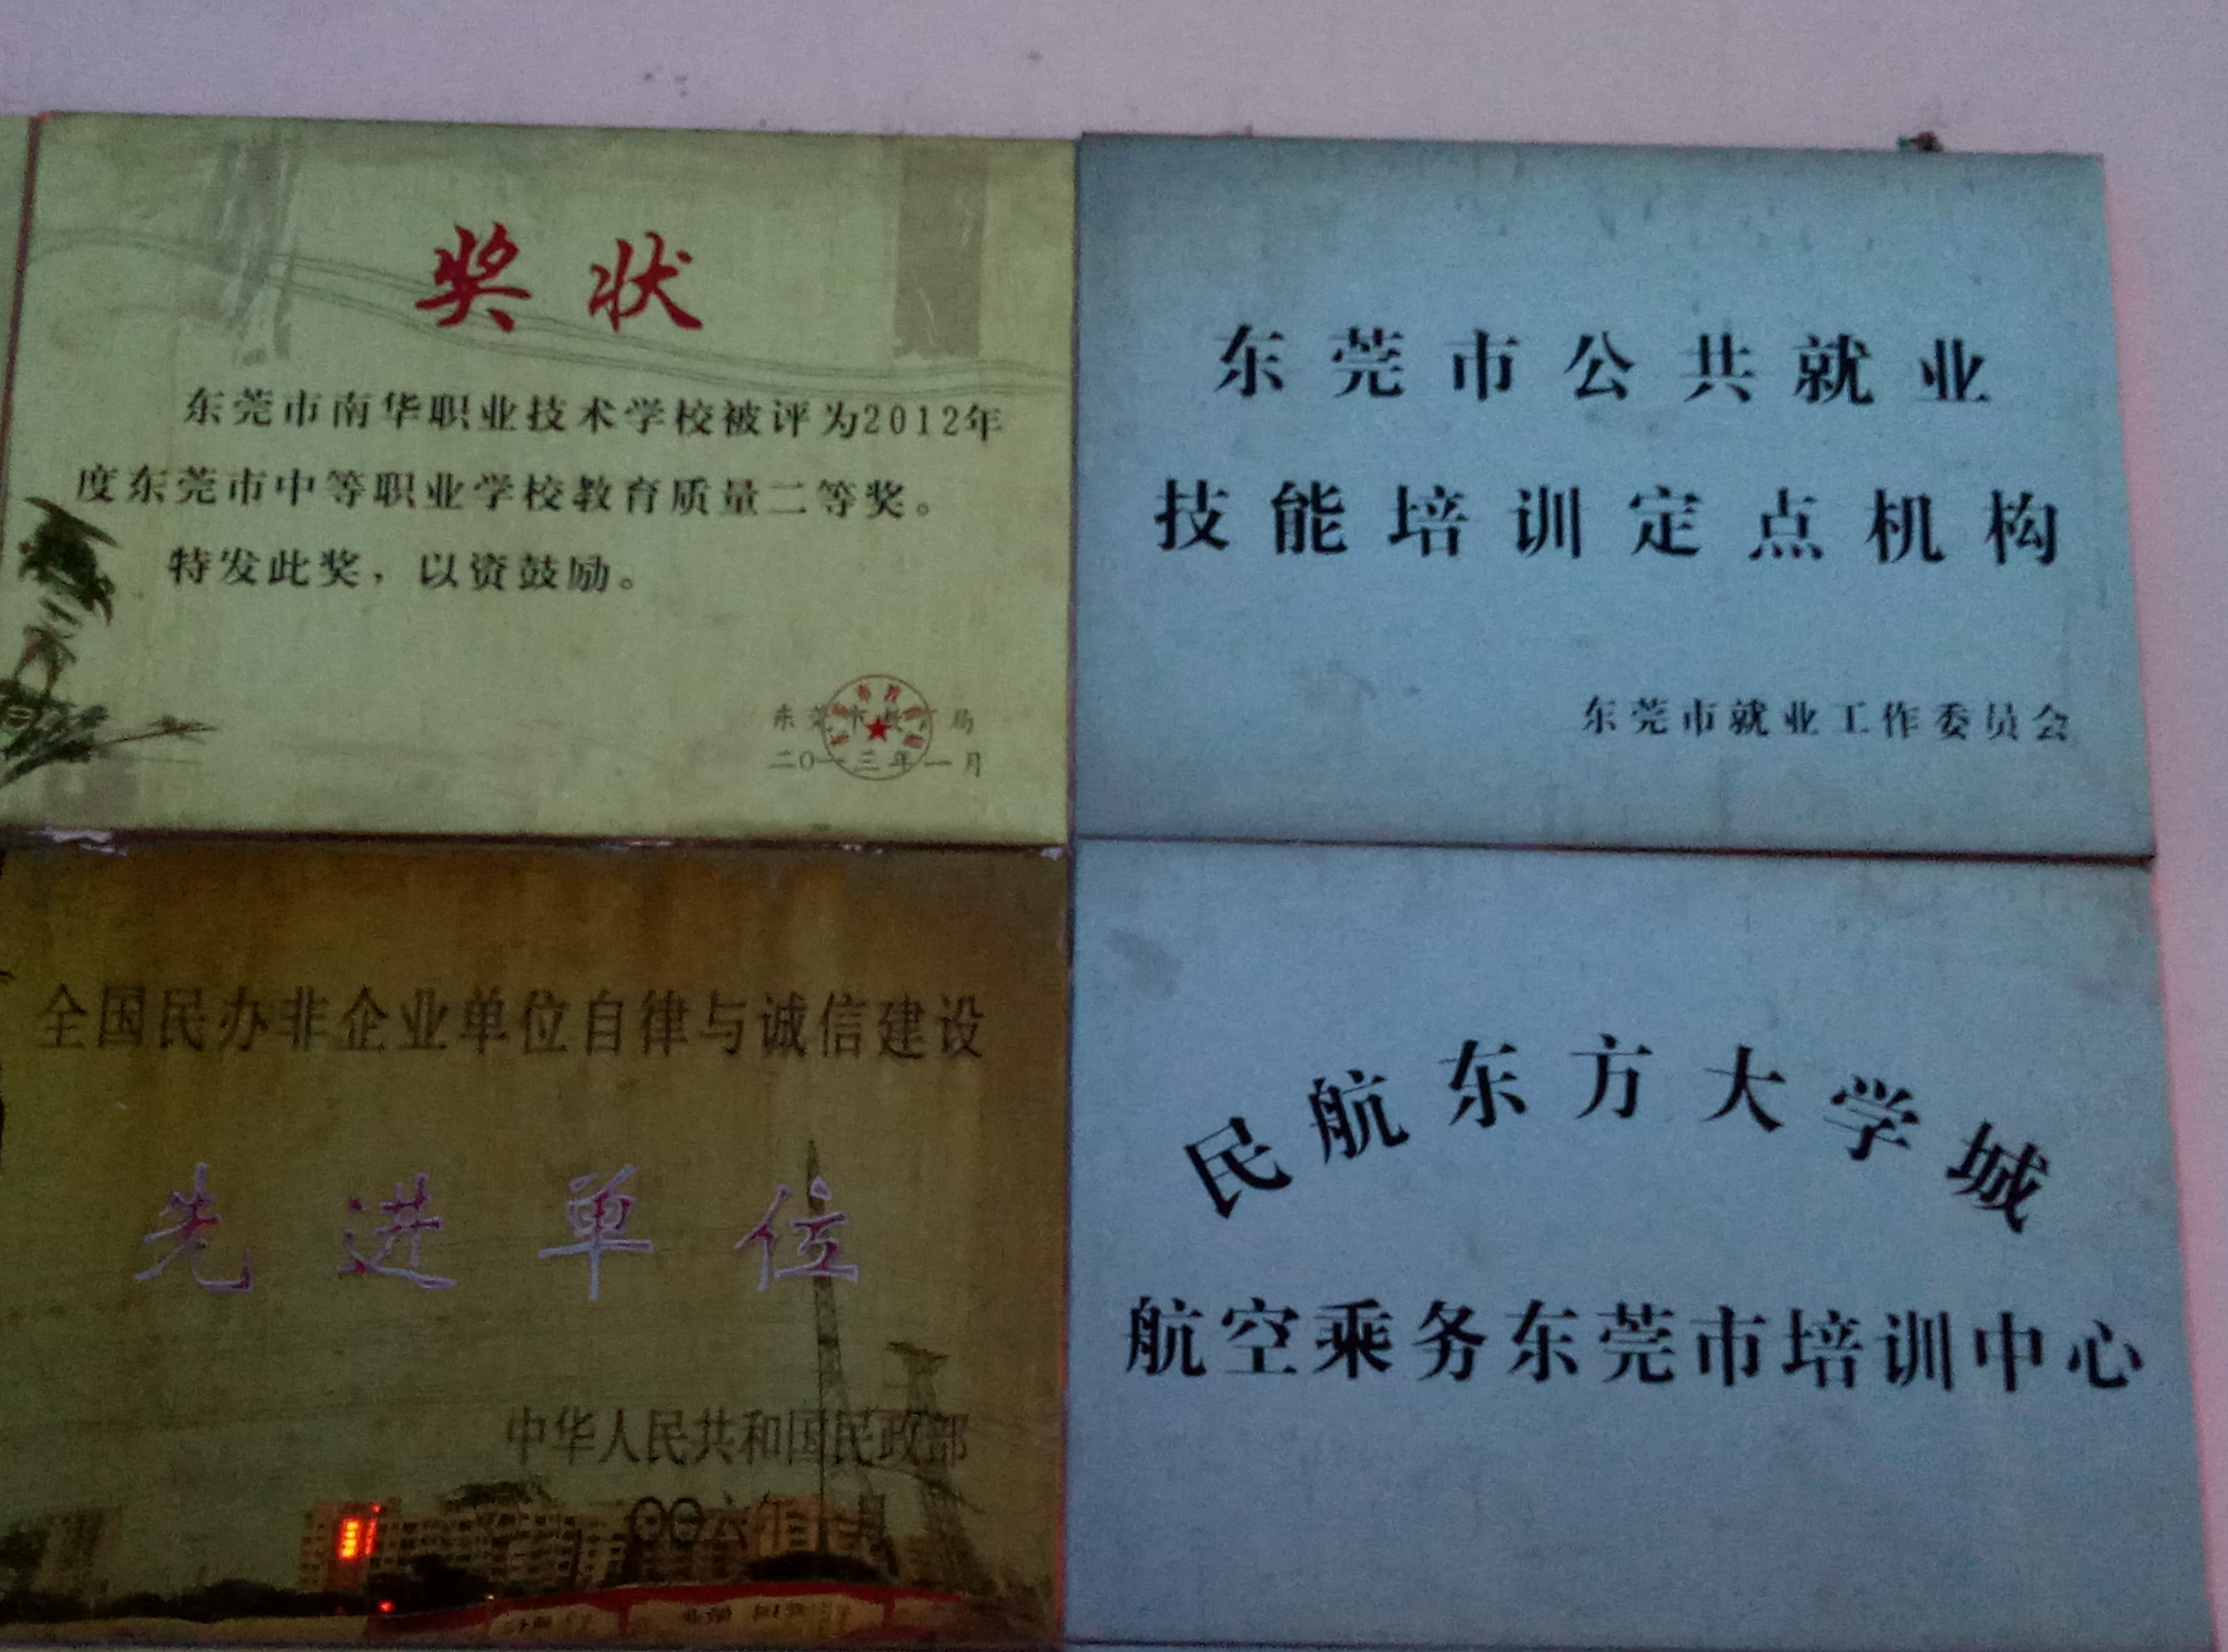 奖状
东莞市南华职业技术学校被评为2012年
度东莞市中等职业学校教育质量二等奖。
特发此奖，以资鼓励。
东莞市教育局
二〇一三年一月
东莞市公共就业
技能培训定点机构
东莞市就业工作委员会
全国民办非企业单位自律与诚信建设
先进单位
中华人民共和国民政部
民航东方大学城
航空乘务东莞市培训中心